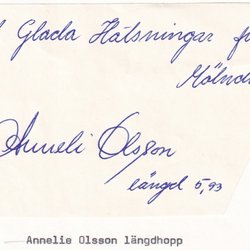 Glada Hälsningar
Mölnd
Anneli Olsson
längd 5,93
Annelie Olsson längdhopp